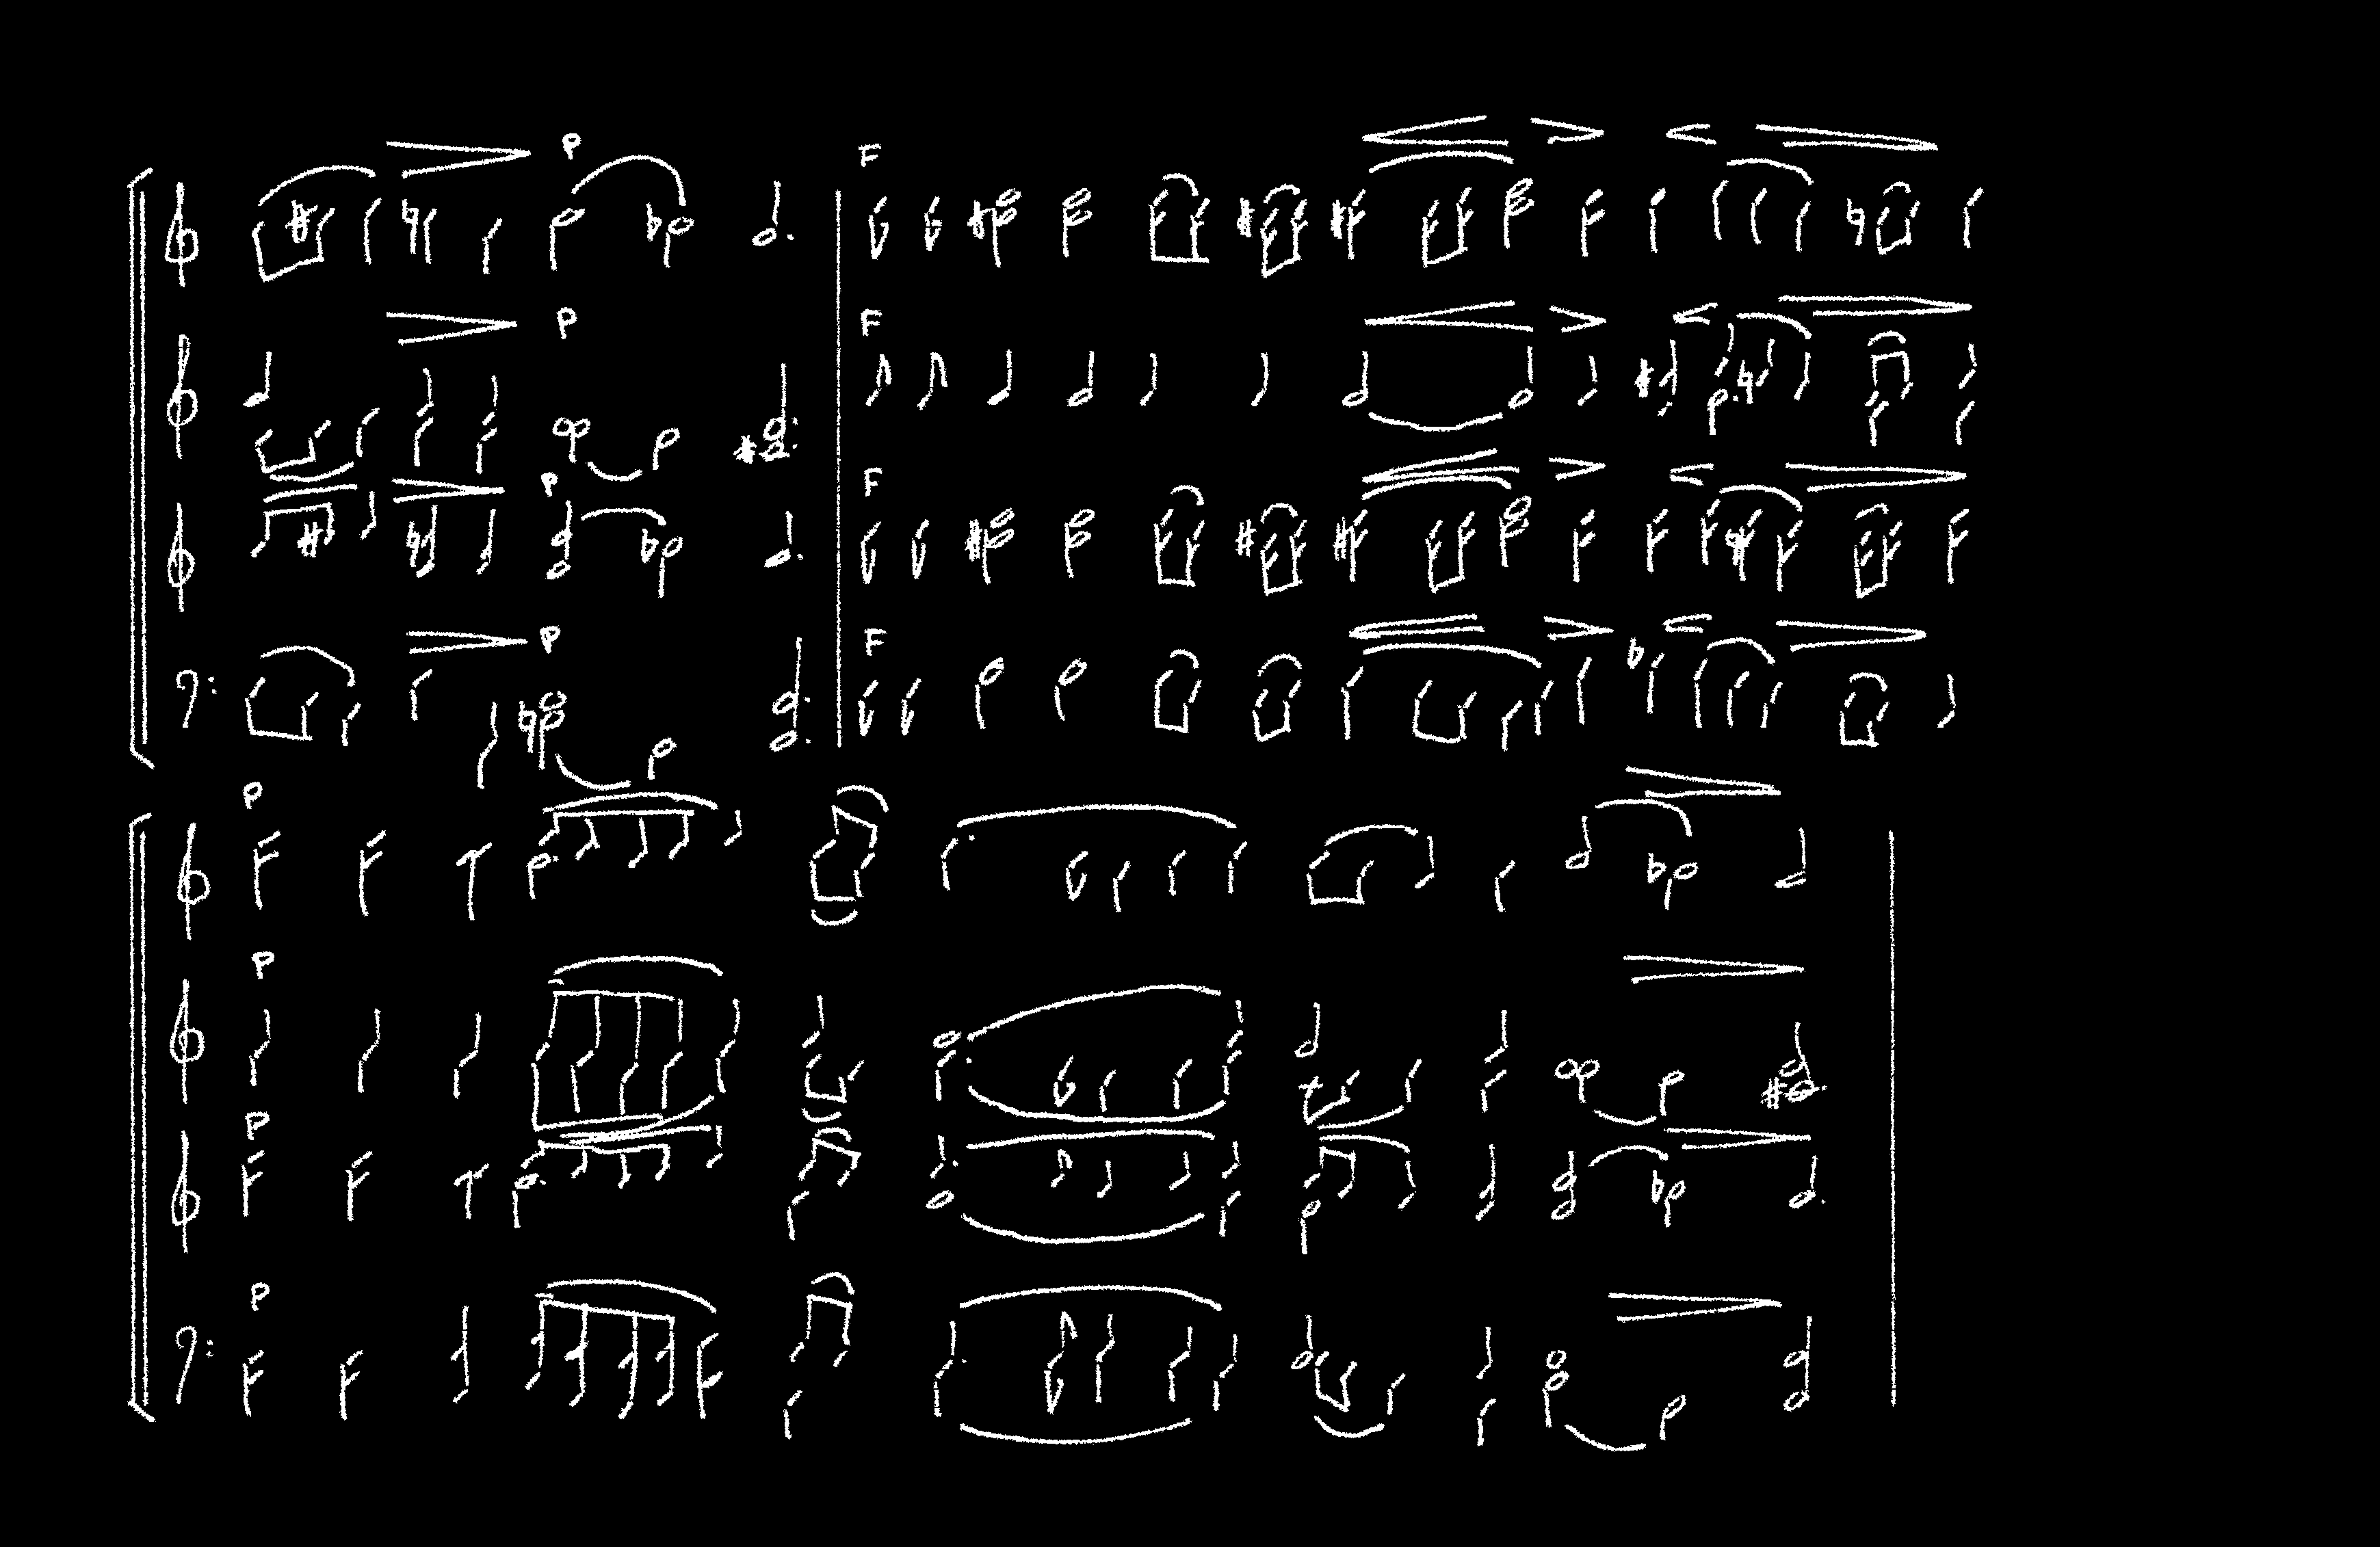 p
F
p
F
p
F
p
F
p
p
p
p